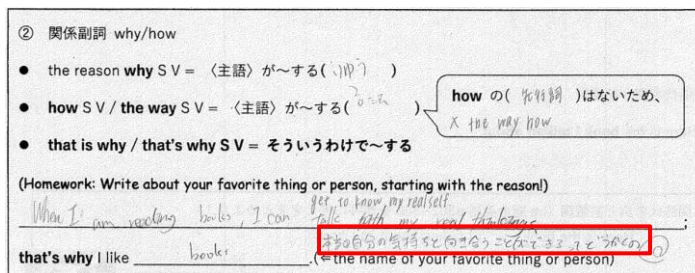 ② 関係副詞 why/how
● the reason why S V = 〈主語〉が~する( りゆう )
● how S V / the way S V = 〈主語〉が~する( )
how の( 先行詞 )はないため、
× the way how
● that is why / that's why S V = そういうわけで~する
(Homework: Write about your favorite thing or person, starting with the reason!)
get to know my real self
When I am reading books, I can talk with my real ;
本当の自分の気持ちと向き合うことができるってどうかくの
that's why I like books .(⇐the name of your favorite thing or person)